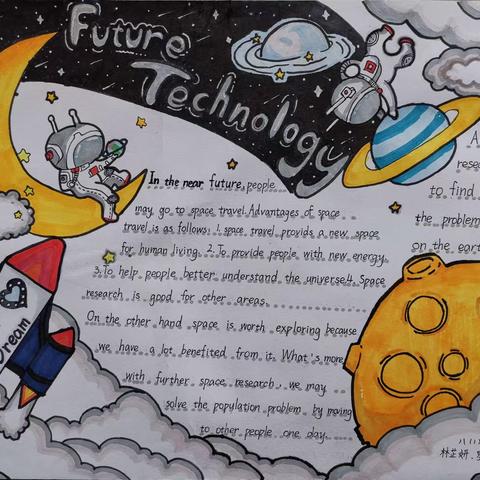 Future
Technology
In the near future, people
may go to space travel. Advantages of space
travel is as follows: 1. space travel provids a new space
for human living. 2. To provide people with new energy.
3. To help people better understand the universe 4. Space
research is good for other areas.
On the other hand space is worth exploring because
we have a lot benefited from it. What's more,
with further space research we may
solve the population problem by moving
to other people one day.
A
resea
to find
the problem
on the earth
Dream
林芷妍